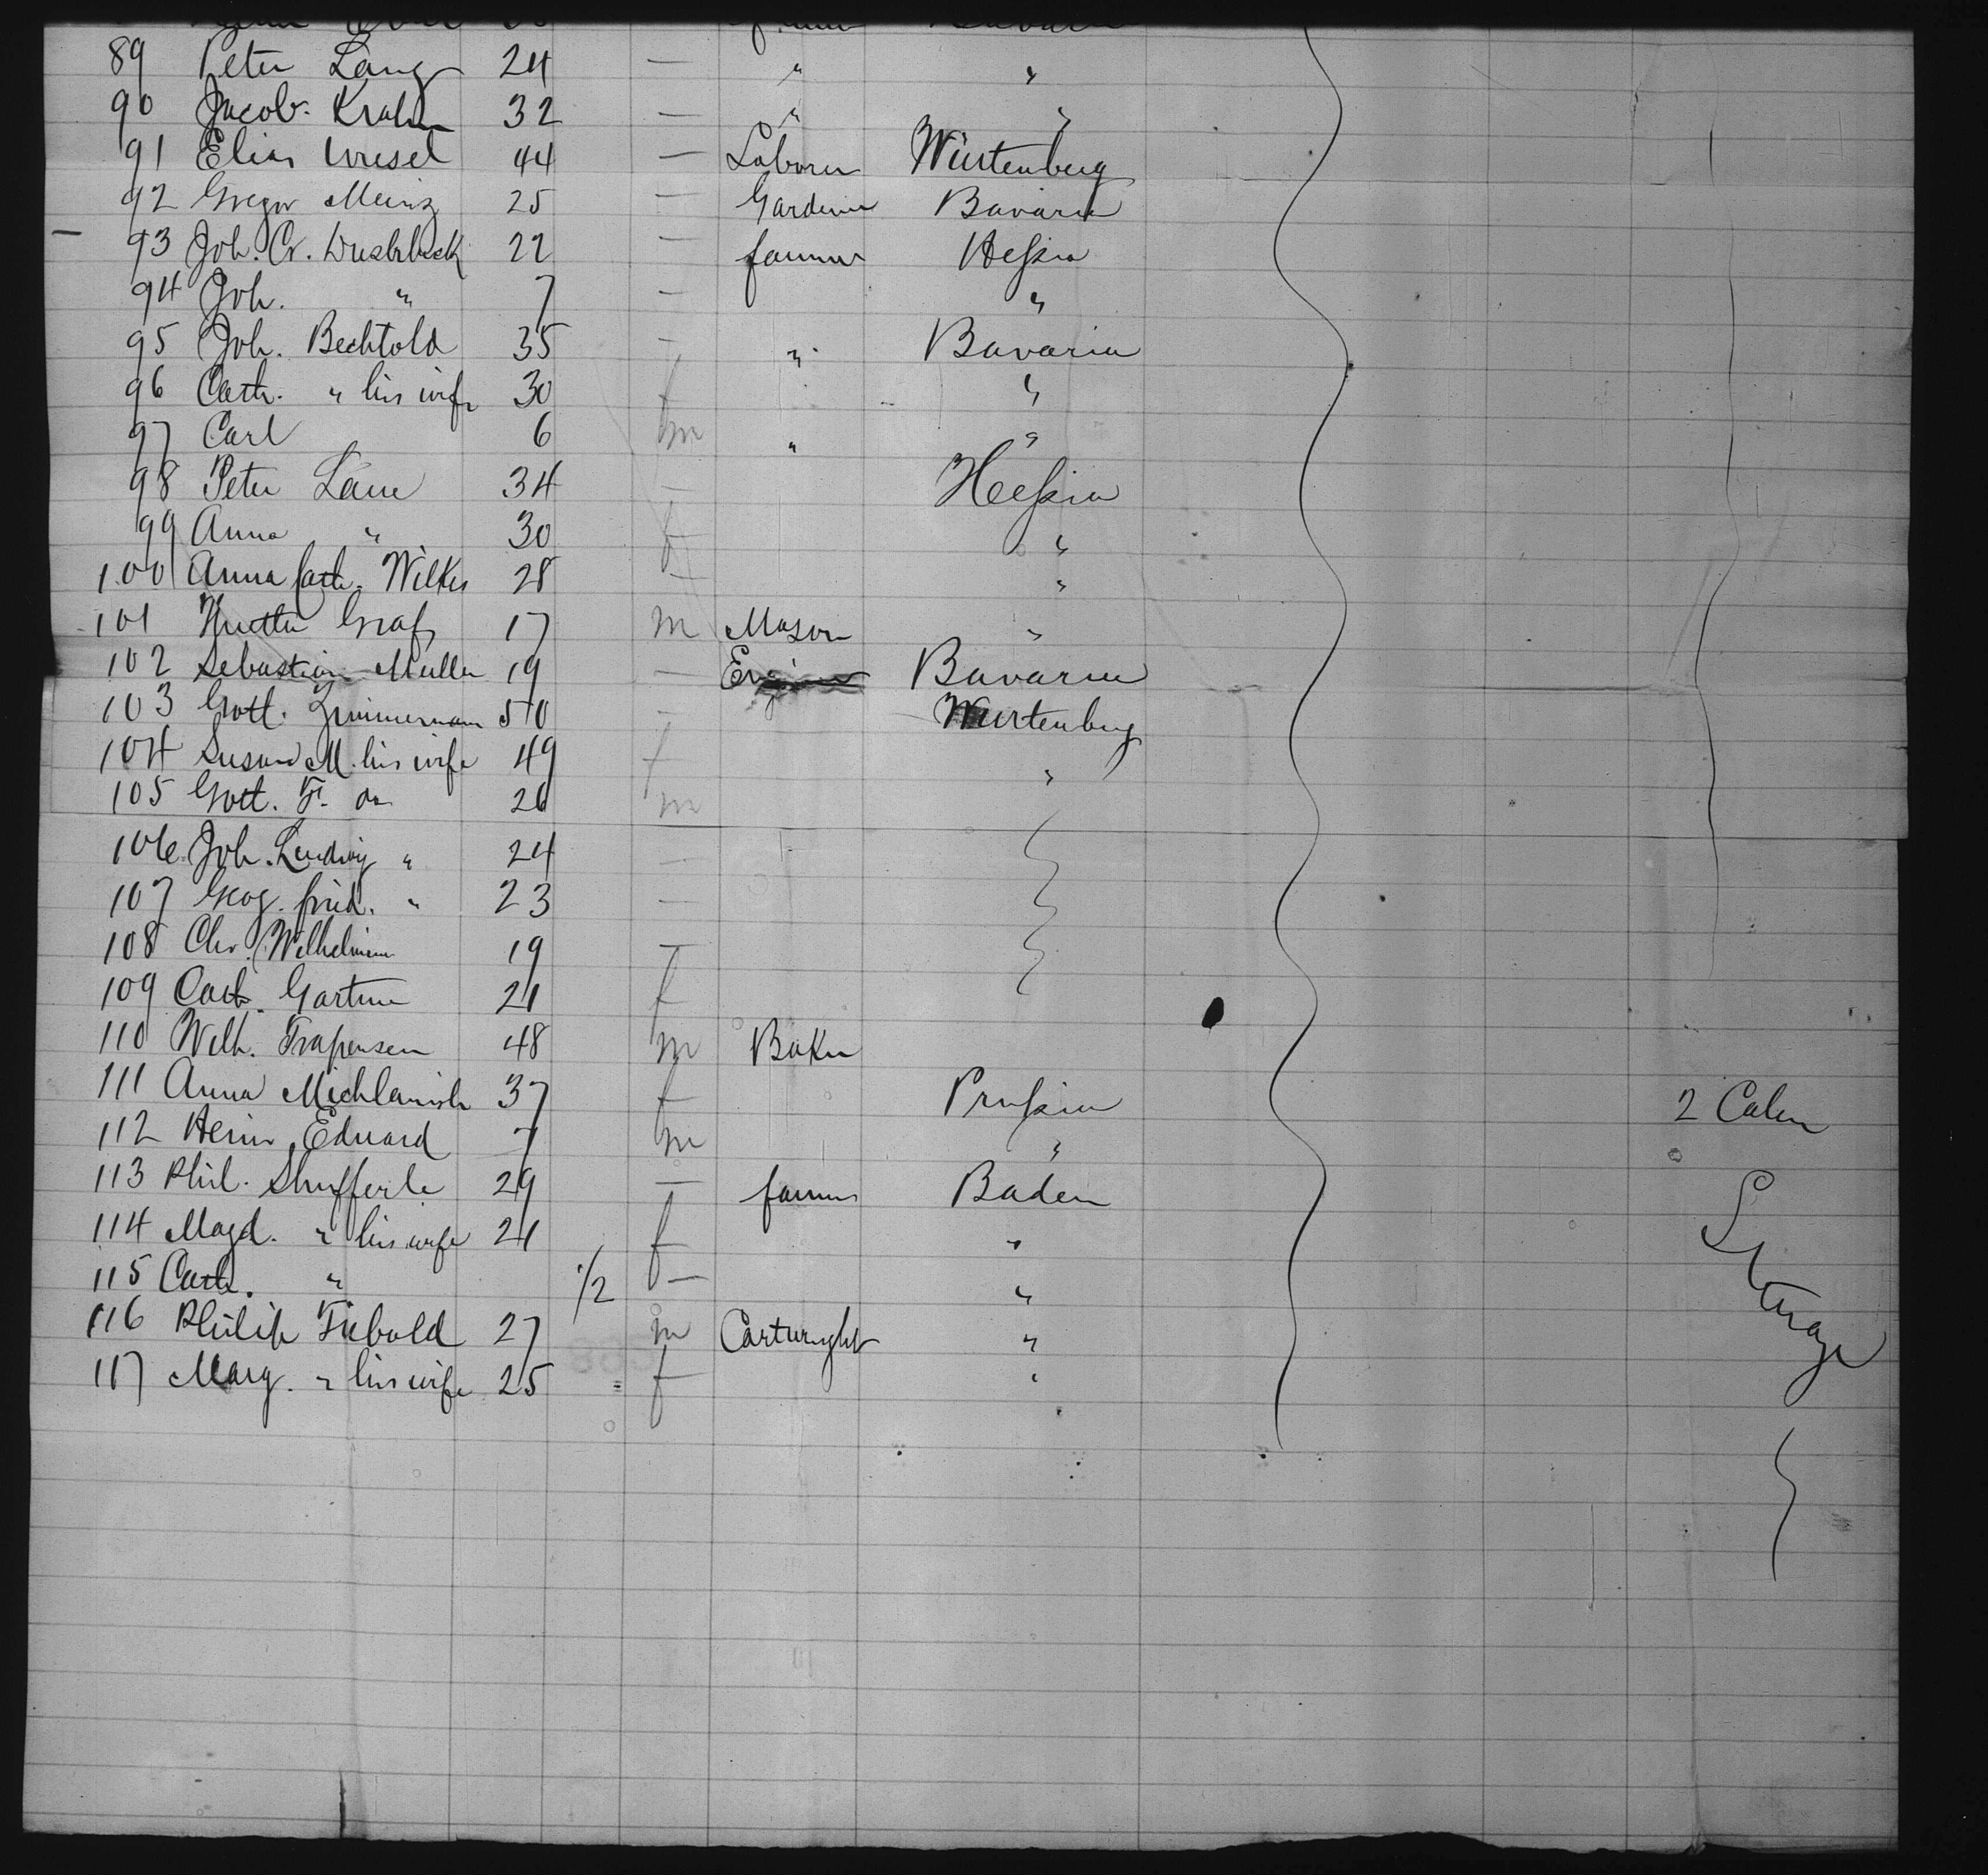 89 Peter Lang 24 — " "
90 Jacob Krahn 32 — " "
91 Elias Wiesel 44 — Laborer Würtenberg
92 Gregor Meinz 25 — Gardener Bavaria
93 Joh. Cr. 22 — farmer Heßia
94 Joh. " 7 — "
95 Joh. Bechtold 35 — " Bavaria
96 Cath. " his wife 30 f "
97 Carl 6 m " "
98 Peter 34 — Heßia
99 Anna " 30 f "
100 Anna Cath. Wilkes 28 — "
101 Graf 17 m Mason "
102 Sebastian Muller 19 — Bavaria
103 Gott. Zimmermann 50 — Wurtenberg
104 Susan M. his wife 49 f "
105 Gott. F. do 26 m
106 Joh. Ludwig " 24 —
107 Geog. fried. " 23 —
108 Chr. Wilhelmine 19 —
109 Cath. Gartner 21 f
110 Wilh. 48 m Baker
111 Anna 37 f Prußia 2 Cabin
112 Eduard 7 m "
113 Phil. Shufferle 29 — farmer Baden
114 Magd. " his wife 21 f "
115 Cath. " 1/2 — "
116 Philip Tiebold 27 m Cartwright "
117 Marg. " his wife 25 f "
Sterage